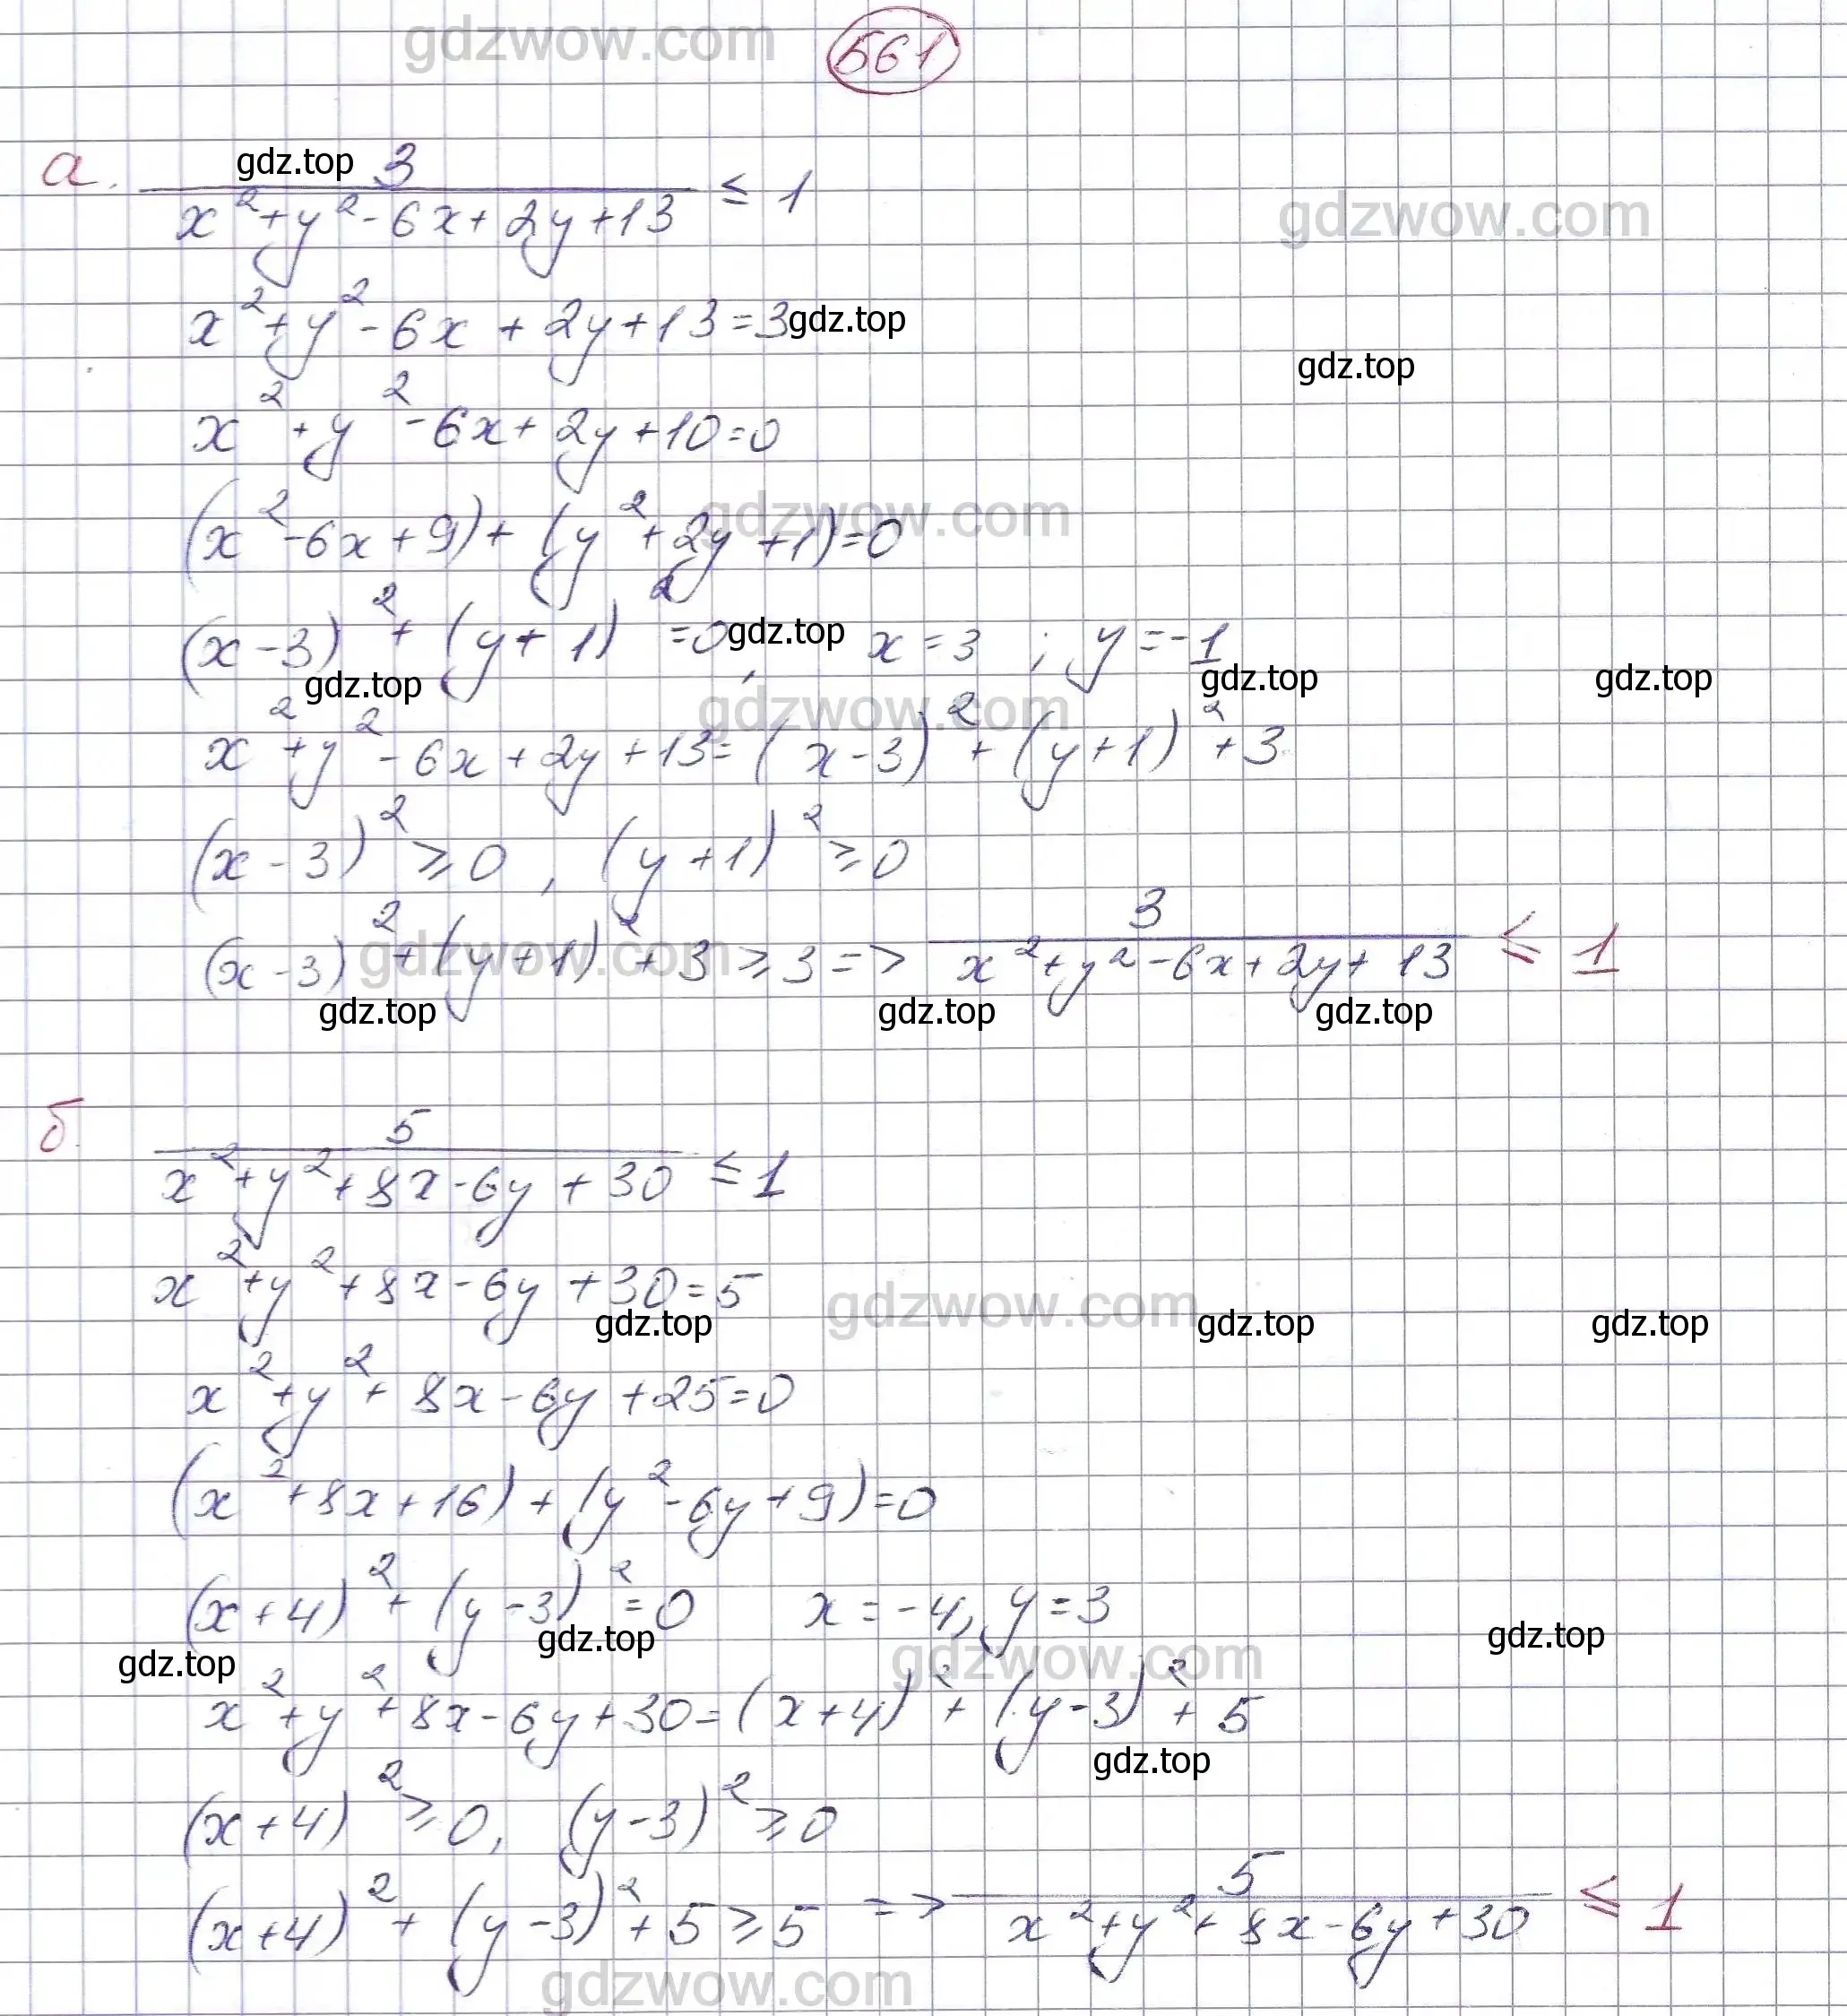 gdzwow.com
561
gdz.top
а. 3/(x²+y²-6x+2y+13) ≤ 1
gdzwow.com
x²+y²-6x+2y+13=3
gdz.top
gdz.top
x²+y²-6x+2y+10=0
gdzwow.com
(x²-6x+9)+(y²+2y+1)=0
(x-3)²+(y+1)²=0, x=3; y=-1
gdz.top
gdz.top gdz.top gdz.top
gdzwow.com
x²+y²-6x+2y+13=(x-3)²+(y+1)²+3
(x-3)²⩾0, (y+1)²⩾0
(x-3)²+(y+1)²+3⩾3=> 3/(x²+y²-6x+2y+13) ≤ 1
gdzwow.com
gdz.top gdz.top gdz.top
б. 5/(x²+y²+8x-6y+30) ≤ 1
x²+y²+8x-6y+30=5
gdzwow.com
gdz.top gdz.top gdz.top
x²+y²+8x-6y+25=0
(x²+8x+16)+(y²-6y+9)=0
(x+4)²+(y-3)²=0 x=-4, y=3
gdz.top gdz.top gdz.top
gdzwow.com
x²+y²+8x-6y+30=(x+4)²+(y-3)²+5
gdz.top
(x+4)²⩾0, (y-3)²⩾0
(x+4)²+(y-3)²+5⩾5 => 5/(x²+y²+8x-6y+30) ≤ 1
gdzwow.com